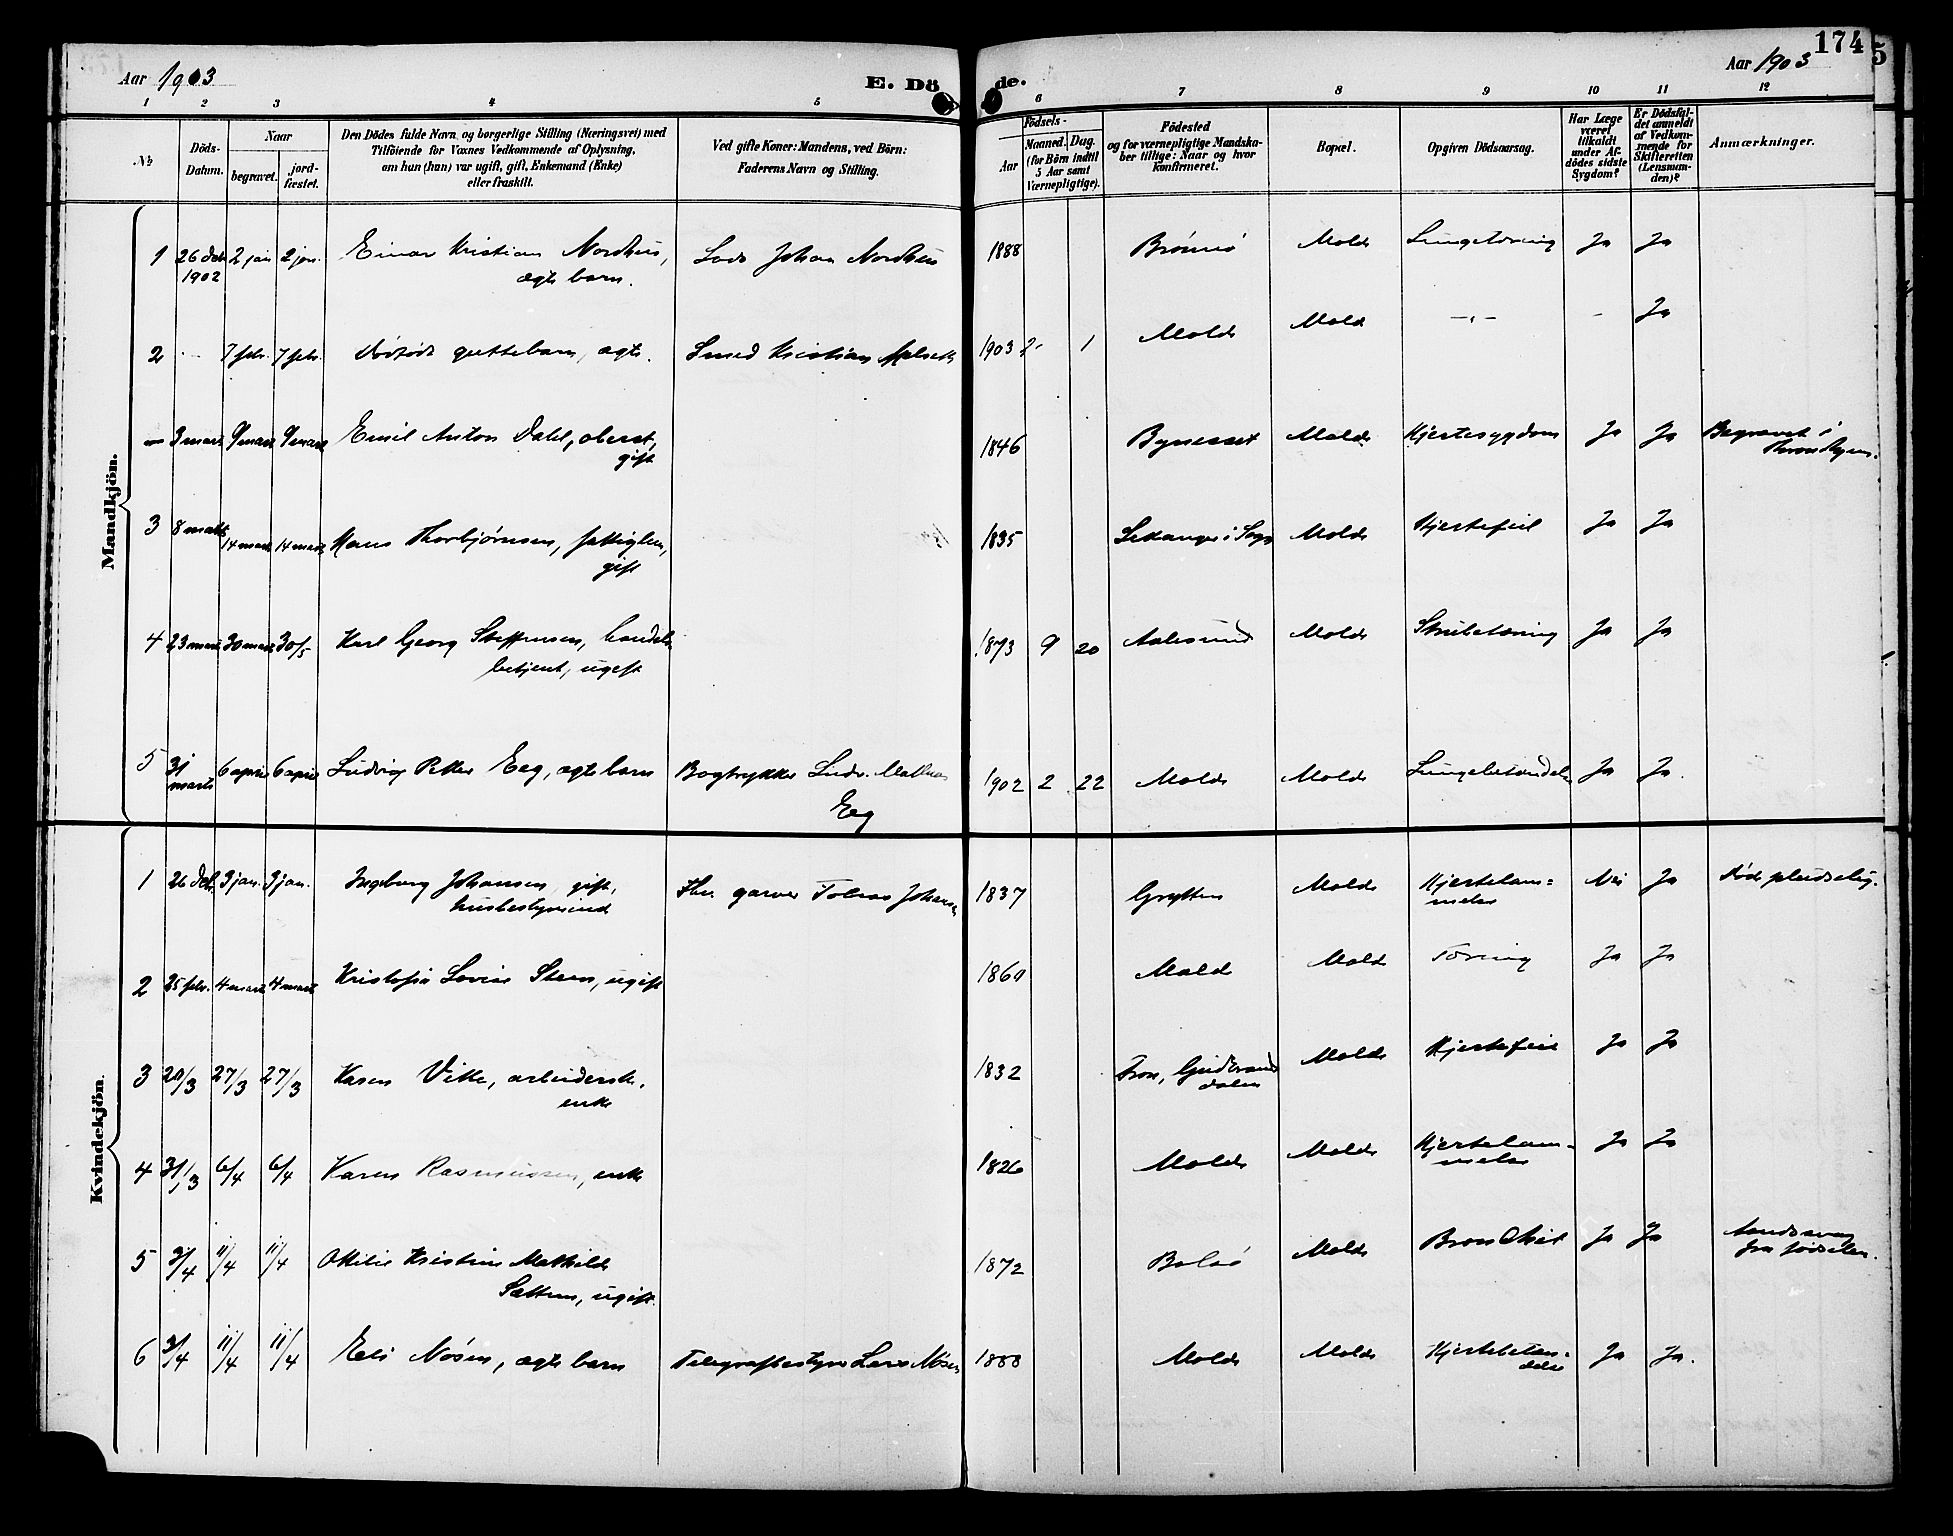 174
5
Aar 1903
E. Dö
de.
Aar 1903
1 2 3 4 5 6 7 8 9 10 11 12
No
Döds-
Datum.
Naar
begravet.
jord-
fæstet.
Den Dödes fulde Navn og borgerlige Stilling (Næringsvei) med
Tilföiende for Voxnes Vedkommende af Oplysning,
om han (hun) var ugift, gift, Enkemand (Enke)
eller fraskilt.
Ved gifte Koner: Mandens, ved Börn:
Faderens Navn og Stilling.
Födsels-
Aar
Maaned. Dag.
(for Börn indtil
5 Aar samt
Værnepligtige).
Födested
og for værnepligtige Mandska-
ber tillige: Naar og hvor
konfirmeret.
Bopæl.
Opgiven Dödsaarsag.
Har Læge
været
tilkaldt
under Af-
dödes sidste
Sygdom?
Er Dödsfal-
det anmeldt
af Vedkom-
mende for
Skifteretten
(Lensman-
den)?
Anmærkninger.
Mandkjön.
1 26 deb 2 jan 2 jan. Einar Kristian Nordhus, Johan Nordhus 1888 Brönnö Molde Lungetæring Ja Ja
1902 ægte barn.
2 - 7 febr. 7 febr. Dødfødt guttebarn, ægte. Smed Kristian 1903 2 1 Molde Molde -"- - Ja
— 3 marts 9 marts 9 marts Emil Anton Dahl, oberst, 1846 Bynesset Molde Hjertesygdom Ja Ja Begravet i
gift Throndhjem.
3 8 marts 14 marts 14 marts Hans Thorbjørnsen, fattiglem, 1835 Lekanger i Sogn Molde Hjertefeil Ja Ja
gift
4 23 marts 30 marts 30/5 Karl Georg Steffensen, handels 1873 9 20 Aalesund Molde Strubetæring Ja Ja
betjent, ugift
5 31 6 april 6 april Ludvig Petter Eeg, ægte barn Bogtrykker Ludv. Mathias 1902 2 22 Molde Molde Lungebetændelse Ja Ja.
marts Eeg
Kvindekjön.
1 26 deb. 3 jan. 3 jan. Ingeborg Johansen, gift, garver Tobias Johansen 1837 Grytten Molde Hjertelam= Nei Ja Død pludselig.
husbestyrerinde melse
2 25 febr. 4 marts 4 marts Kristofa Lovise Steen, ugift 1860 Molde Molde Tæring Ja Ja
3 20/3 27/3 27/3 Karen Vike, arbeiderske, 1832 Fron, Gudbrands Molde Hjertefeil Ja Ja
enke dalen
4 31/3 6/4 6/4 Karen Rasmussen, enke 1826 Molde Molde Hjertelam- Ja Ja
melse
5 3/4 11/4 11/4 Otilie Kristine Mathilde 1872 Bolsö Molde Bronchit Ja Ja Aandssvag
Sættem, ugift. fra fødselen.
6 3/4 11/4 11/4 Eli Nösen, ægte barn Telegrafbestyrer Lars Nösen 1888 Molde Molde Hjertebetæn= Ja Ja.
delse